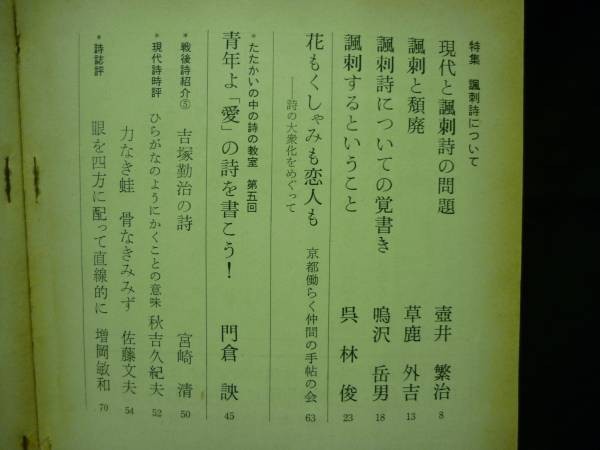 特集 諷刺詩について
現代と諷刺詩の問題 壺井 繁治 8
諷刺と頽廃 草鹿 外吉 13
諷刺詩についての覚書き 鳴沢 岳男 18
諷刺するということ 呉 林 俊 23
花もくしゃみも恋人も 京都働らく仲間の手帖の会 63
――詩の大衆化をめぐって
*たたかいの中の詩の教室 第五回
青年よ「愛」の詩を書こう! 門倉 訣 45
*戦後詩紹介⑤ 吉塚勤治の詩 宮崎 清 50
*現代詩時評 ひらがなのようにかくことの意味 秋吉久紀夫 52
力なき蛙 骨なきみみず 佐藤文夫 54
*詩誌評 眼を四方に配って直線的に 増岡敏和 70